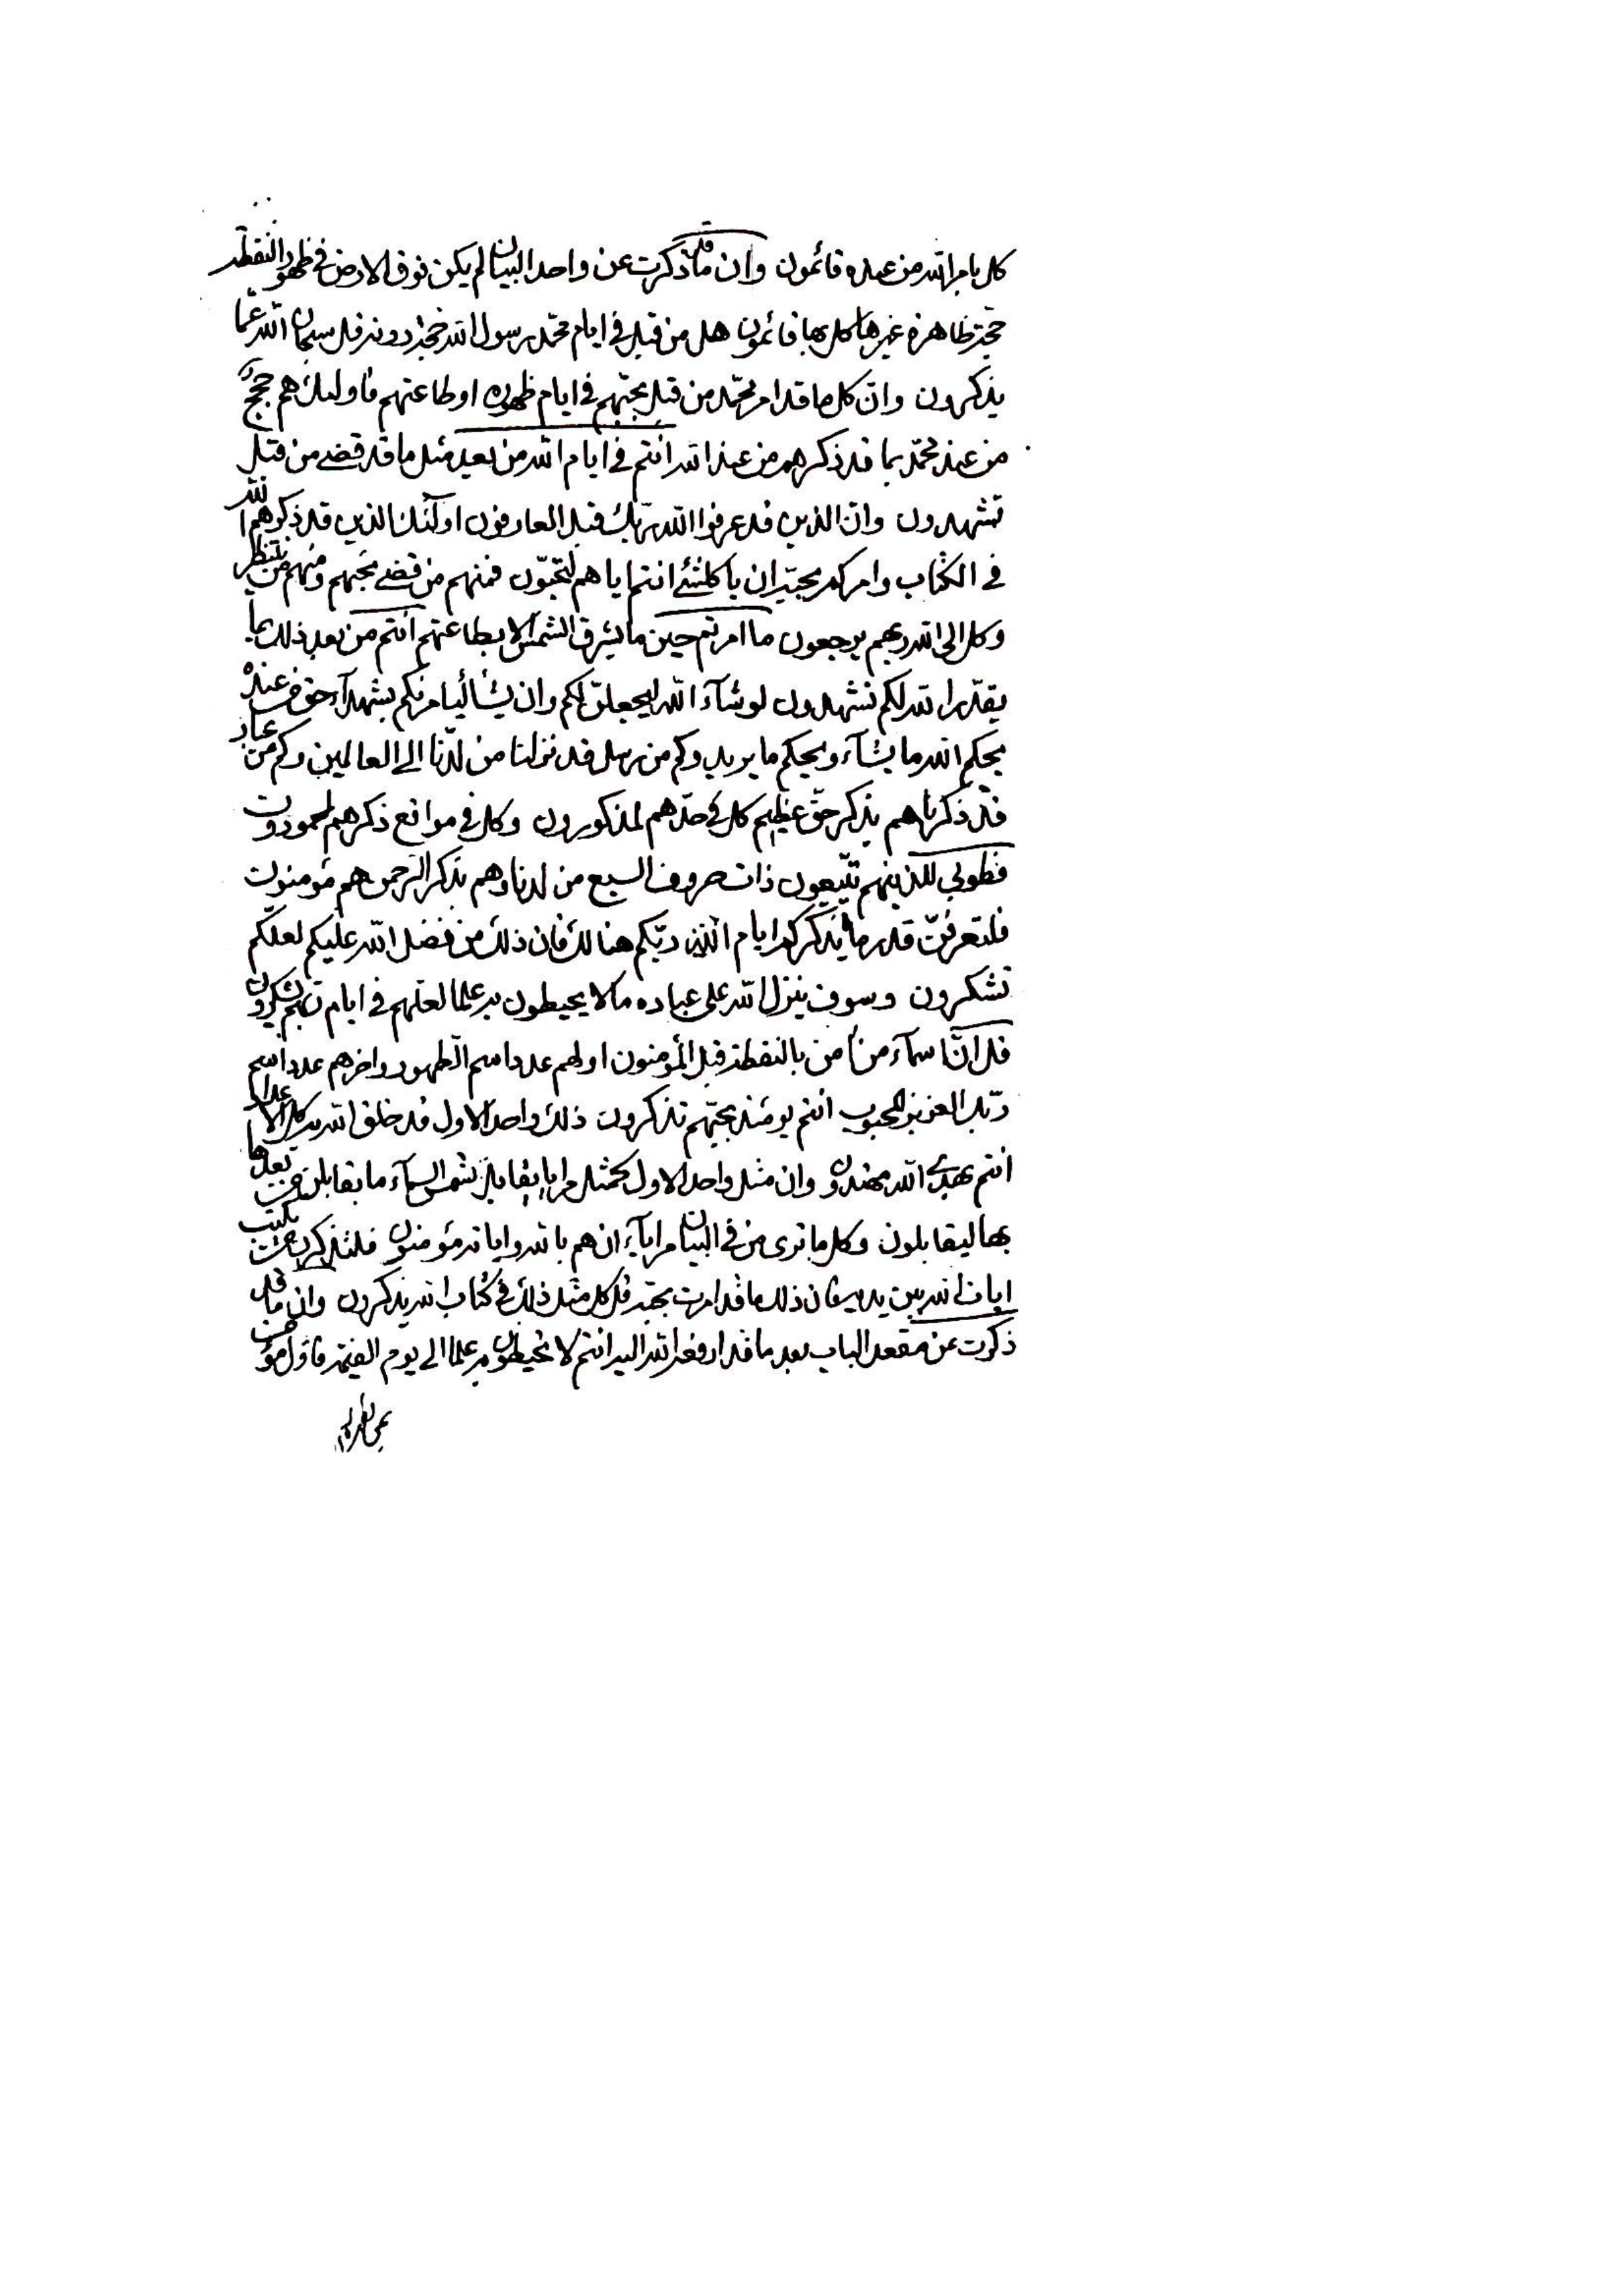 كل بامر الله من عنده قائمون وان ما قد ذكرت عن واحد البيان لم يكن فوق الارض في ظهور النقطة
حجة ظاهرة غيرها كل بها قائمون هل من قبل في ايام محمد رسول الله حجة دونه قل سبحان الله عما
يذكرون وان كل ما قد امر محمد من قبل بحبهم في ايام ظهوره او طاعتهم فاولئك هم حجج
من عند محمد بما قد ذكرهم من عند الله انتم في ايام الله من بعد مثل ما قد قضى من قبل
تشهدون وان الذين قد عرفوا الله ربك قبل العارفون اولئك الذين قد ذكرهم الله
في الكتاب وامركم بحبه ان يا كلشئ انتم اياهم لتحبون فمنهم من قضى نحبهم ومنهم من ينتظر
وكل الى الله ربهم يرجعون ما امرتم حين ما يشرق الشمس الا بطاعتهم انتم من بعد ذلك بما
يقدر الله لكم تشهدون لو شاء الله ليجعلن لكم وان يشأ ليأمرنكم بشهداء حق من عنده
يحكم الله ما يشاء ويحكم ما يريد وكم من رسل قد نزلنا من لدنا الى العالمين وكم من عباد
قد ذكرناهم بذكر حق عظيم كل في حدهم لمذكورون وكل في مواقع ذكرهم لمحمودون
فطوبى للذينهم يتبعون ذات حروف السبع من لدنا وهم بذكر الرحمن هم مؤمنون
فلتعرفن قدر ما يذكركم ايام الله ربكم هنالك فان ذلك من فضل الله عليكم لعلكم
تشكرون وسوف ينزل الله على عباده ما لا يحيطون به علما لعلهم في ايام ربهم يشكرون
قل ان اسماء من أمن بالنقطة قبل المؤمنون اولهم عدد اسم الظهور واخرهم عدد اسم
ربك العزيز المحبوب انتم يومئذ بحبهم تذكرون ذلك واحد الاول قد خلق الله به كل الاعداد
انتم بهدى الله مهتدون وان مثل واحد الاول كمثل مرايا يقابلن شمس السماء ما يقابلن من بعدها
بها ليقابلون وكل ما ترى من في البيان مرايآء ان هم بالله واياته مؤمنون فلتذكرن من يكتب
ايات الله بين يديه فان ذلك ما قد امرت بحبه قل كل مثل ذلك في كتاب الله يذكرون وان ما قد
ذكرت عن مقعد الباب بعد ما قد ارفعه الله اليه انتم لا تحيطون به علما الى يوم القيمة فاول مؤمن